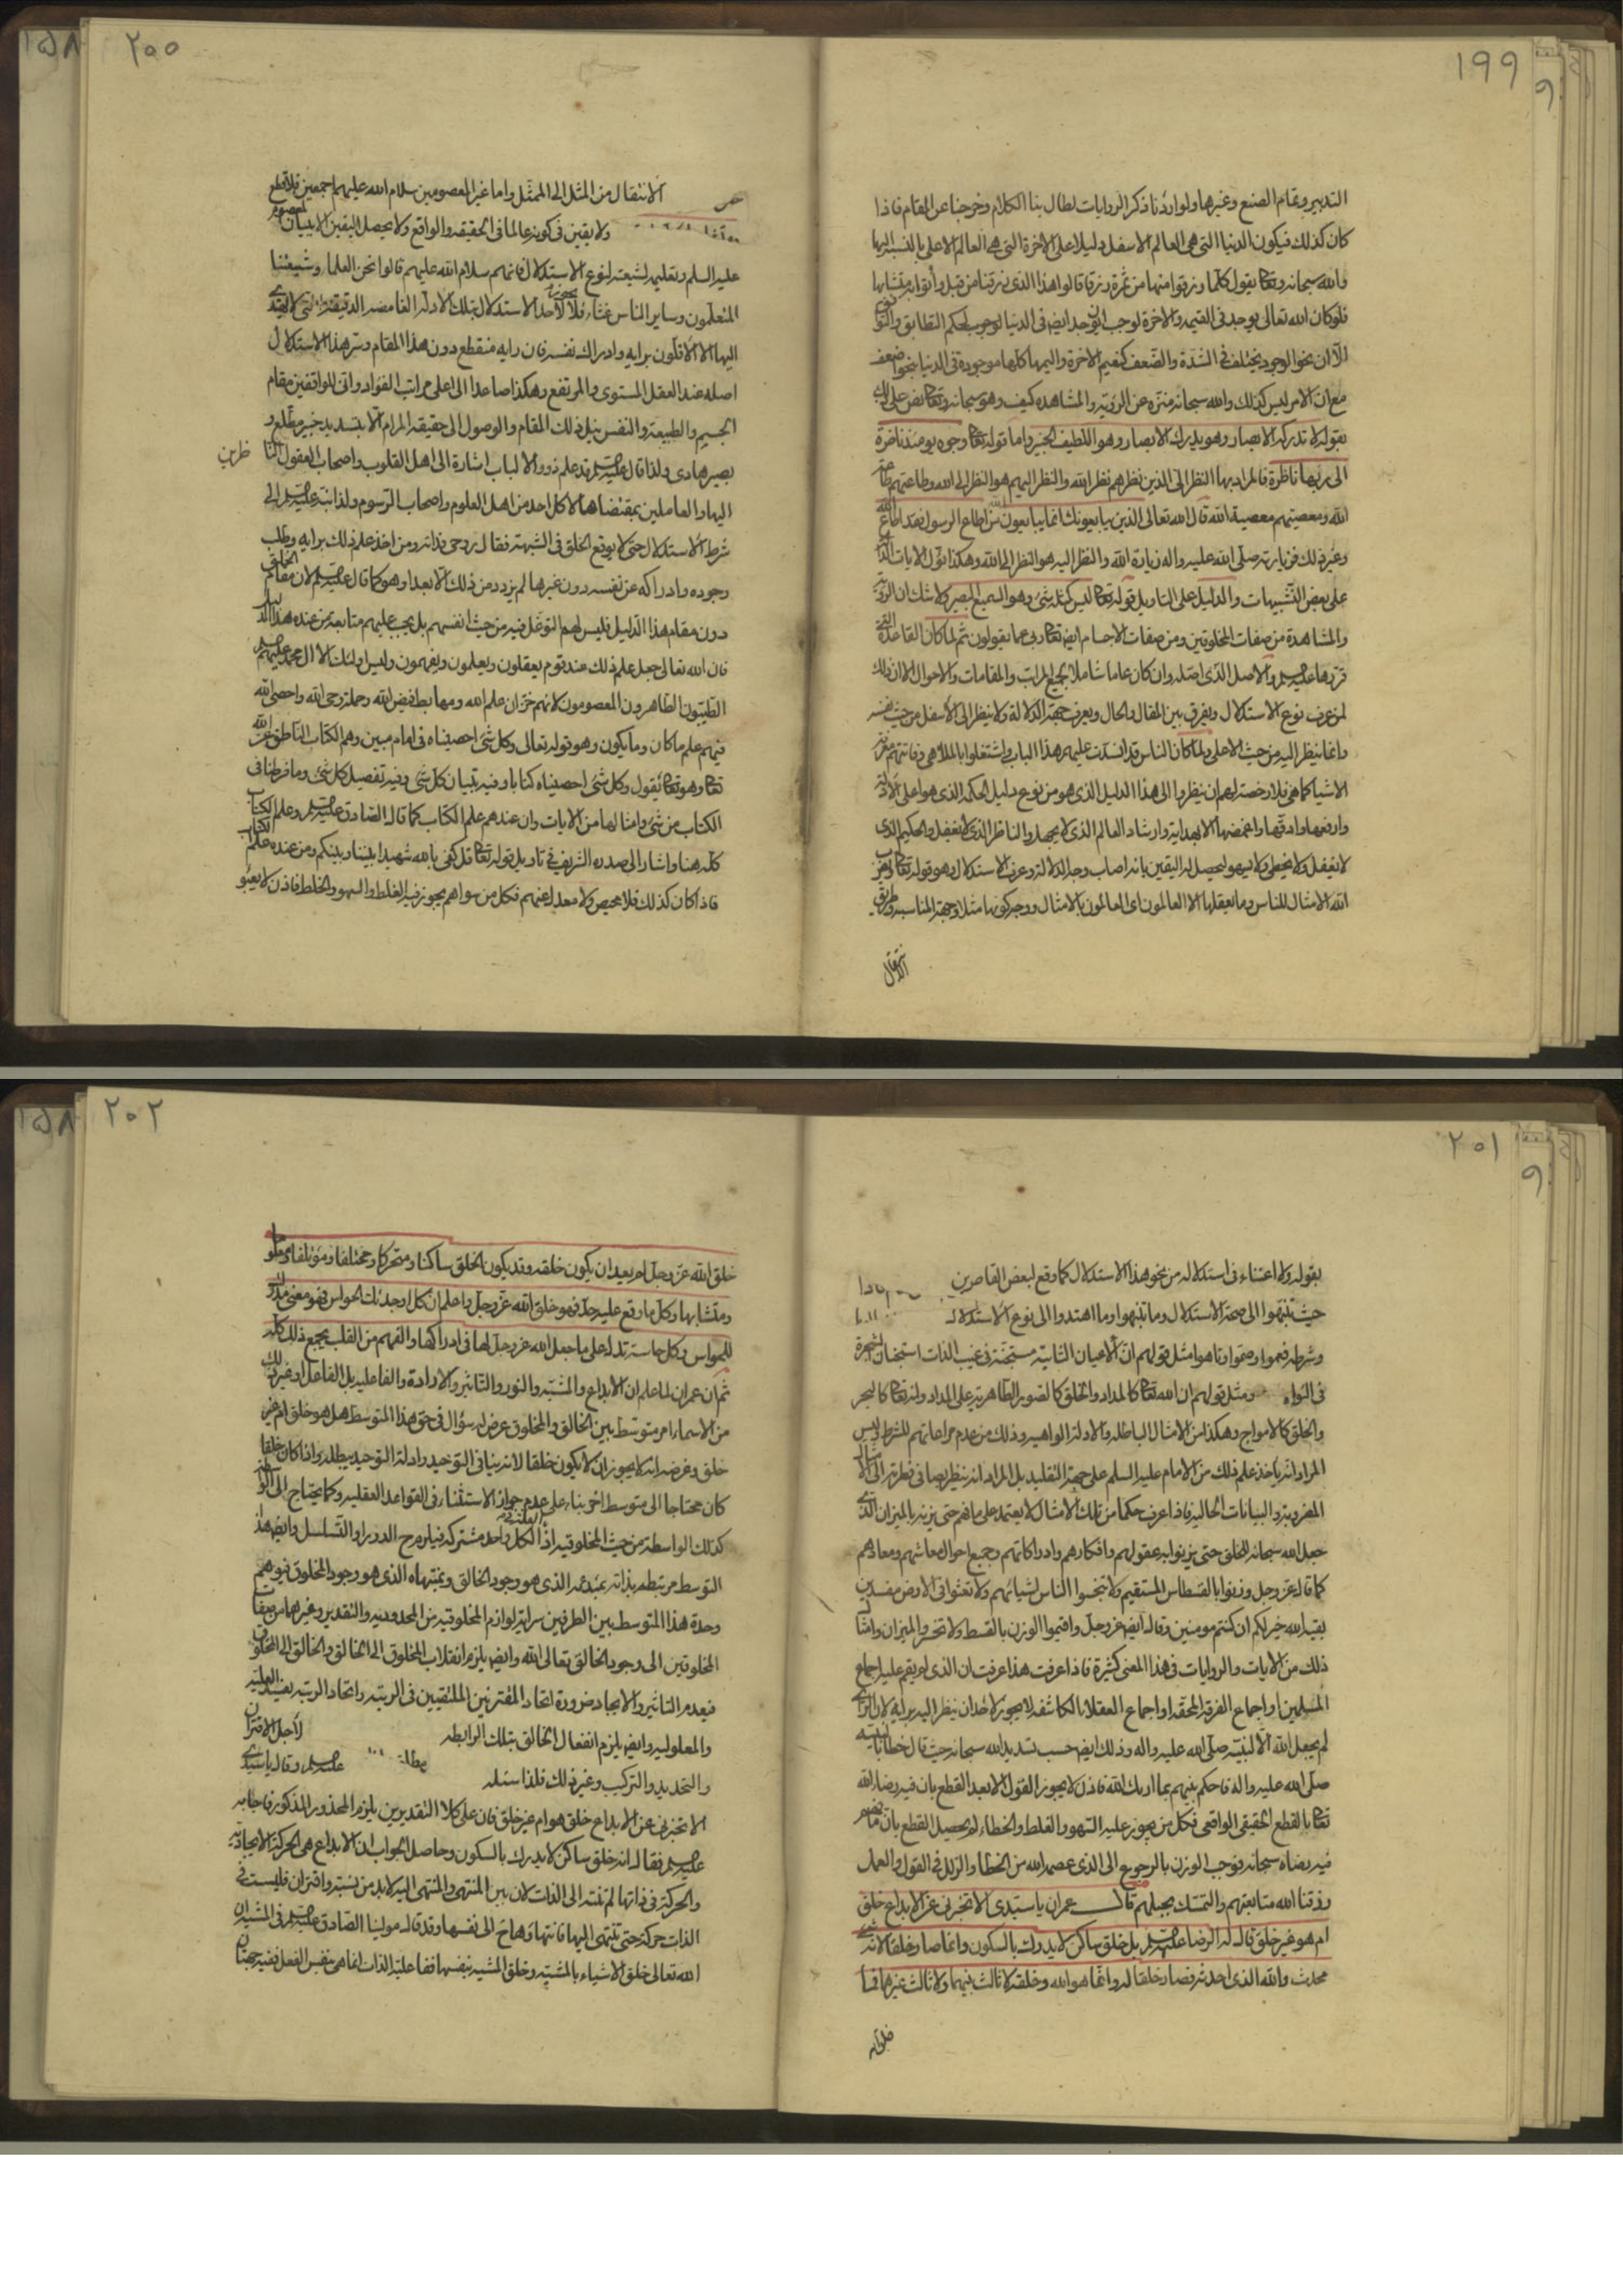 ١٩٩
التدبير وتمام الصنع وغيرها ولو اردنا ذكر الروايات لطال بنا الكلام وخرجنا عن المقام فاذا
كان كذلك فيكون الدنيا التى هى العالم الاسفل دليلا على الاخرة التى هى العالم الاعلى بالنسبة اليها
والله سبحانه وتعالى يقول كلما رزقوا منها من ثمرة رزقا قالوا هذا الذى رزقنا من قبل وأتوا به متشابها
فلو كان الله تعالى يوجد فى القيمة والاخرة لوجب ان يوجد ايض فى الدنيا لوجوب لحكم التطابق والتوافق
الا ان نحو الوجود يختلف فى الشدة والضعف كنعيم الاخرة واليمها كلها موجودة فى الدنيا بنحو اضعف
مع ان الامر ليس كذلك والله سبحانه منزه عن الرؤية والمشاهده كيف وهو سبحانه وتعالى نص على ذلك
بقوله لا تدركه الابصار وهو يدرك الابصار وهو اللطيف الخبير واما قوله تعالى وجوه يومئذ ناضرة
الى ربها ناظرة فالمراد بها النظر الى الذين نظرهم نظر الله والنظر اليهم هو النظر الى الله وطاعتهم طاعة
الله ومعصيتهم معصية الله قال الله تعالى الذين يبايعونك انما يبايعون الله من اطاع الرسول فقد اطاع الله
وغير ذلك فزيارته صلى الله عليه واله زيارة الله والنظر اليه هو النظر الى الله وهكذا تؤل الايات الدالة
على بعض التشبيهات والدليل على التاويل قوله تعالى ليس كمثله شئ وهو السميع البصير ولا شك ان الرؤية
والمشاهدة من صفات المخلوقين ومن صفات الاجسام ايض تعالى ربى عما يقولون ثم لما كان القاعدة التى
قررها عليه السلم والاصل الذى اصله وان كان عاما شاملا لجميع المراتب والمقامات والاحوال الا ان ذلك
لمن عرف نوع الاستدلال ويفرق بين المقال والحال ويعرف جهة الدلالة ولا ينظر الى الاسفل من حيث نفسه
وانما ينظر اليه من حيث الاعلى ولما كان الناس قد انسدت عليهم هذا الباب واشتغلوا بالملاهى وفاتتهم معرفة
الاشيا كما هى فلا رخصة لهم ان ينظروا الى هذا الدليل الذى هو من نوع دليل الحكمة الذى هو اعلى الادلة
وارفعها وادقها واغمضها الا بهداية وارشاد العالم الذى لا يجهل والناظر الذى لا يغفل والحكيم الذى
لا يغفل ولا يخطى ولا يسهو ليحصل له اليقين بانه اصاب وجه الدلالة وعرف الاستدلال وهو قوله تعالى ويضرب
الله الامثال للناس وما يعقلها الا العالمون اى العالمون بالامثال ووجه كونها مثلا وجهة المناسبة وطريق
الانتقال
٢٠٠
الانتقال من المثل الى الممثل واما غير المعصومين سلام الله عليهم اجمعين فلا قطع
ولا يقين فى كونه عالما فى الحقيقة والواقع ولا يحصل اليقين الا ببيان المعصوم
عليه السلم وتعليمه لشيعته لنوع الاستدلال فانهم سلام الله عليهم قالوا نحن العلماء وشيعتنا
المتعلمون وساير الناس غثاء فلا يجوز لاحد الاستدلال بتلك الادلة الغامضة الدقيقة التى لا يهتدى
اليها الا الاقلون برايه وادراك نفسه فان رايه منقطع دون هذا المقام وسر هذا الاستدلال
اصله عند العقل المستوى والمرتفع وهكذا صاعدا الى اعلى مراتب الفؤاد وانى للواقفين مقام
الجسم والطبيعة والنفس بنيل ذلك المقام والوصول الى حقيقة المرام الا بتسديد خبير مطلع و
بصير هادى ولذا قال عليه السلم قد علم ذوو الالباب اشارة الى اهل القلوب واصحاب العقول الناظرين
اليها والعاملين بمقتضاها لا كل احد من اهل العلوم واصحاب الرسوم ولذا نبه عليه السلم الى
شرط الاستدلال حتى لا يوقع الخلق فى الشبهة فقال روحى فداه ومن اخذ علم ذلك برايه وطلب
وجوده وادراكه عن نفسه دون غيرها لم يزدد من ذلك الا بعدا وهو كما قال عليه السلم لان مقام الخلق
دون مقام هذا الدليل فليس لهم التوغل فيه من حيث انفسهم بل يجب عليهم متابعة من عنده هذا الدليل
فان الله تعالى جعل علم ذلك عند قوم يعقلون ويعلمون ويفهمون وليس اولئك الا ال محمد عليهم السلم
الطيبون الطاهرون المعصومون لانهم خزان علم الله ومهابط فيض الله وحملة وحى الله واحصى الله
فيهم علم ما كان وما يكون وهو قوله تعالى وكل شئ احصيناه فى امام مبين وهم الكتاب الناطق عن الله
تعالى وهو تعالى يقول وكل شئ احصيناه كتابا وفيه تبيان كل شئ وفيه تفصيل كل شئ وما فرطنا فى
الكتاب من شئ وامثالها من الايات وان عندهم علم الكتاب كما قال الصادق عليه السلم وعلم الكتاب
كله هنا واشار الى صدره الشريف فى تاويل قوله تعالى قل كفى بالله شهيدا بينى وبينكم ومن عنده علم الكتاب
فاذا كان كذلك فلا محيص ولا معدل عنهم فكل من سواهم يجوز فيه الغلط والسهو والخلط فاذن لا يعبؤ
٢٠١
بقوله ولا اعتناء فى استدلاله من نحو هذا الاستدلال كما وقع لبعض القاصرين
حيث تنبهوا الى صحة الاستدلال وما تنبهوا وما اهتدوا الى نوع الاستدلال
وشرطه فهموا وصوّا ما هوا مثل قولهم ان الاعيان الثابتة مستجنة فى غيب الذات استجنان الشجرة
فى النواة ومثل قولهم ان الله تعالى كالمداد والخلق كالصور الظاهرية على المداد وانه تعالى كالبحر
والخلق كالامواج وهكذا من الامثال الباطلة والادلة الواهية وذلك من عدم مراعاتهم للشرط وليس
المراد انه ياخذ علم ذلك من الامام عليه السلم على جهة التقليد بل المراد انه ينظر بصافى فطرته الى الامثال
المضروبة والبيانات الحالية فاذا عرف حكما من تلك الامثال لا يعتمد على ما فهم حتى يزنه بالميزان الذى
جعل الله سبحانه للخلق حتى يزنوا به عقولهم وافكارهم وادراكاتهم وجميع احوال معاشهم ومعادهم
كما قال عز وجل وزنوا بالقسطاس المستقيم ولا تبخسوا الناس اشيائهم ولا تعثوا فى الارض مفسدين
بقية الله خير لكم ان كنتم مومنين وقال ايض عز وجل واقيموا الوزن بالقسط ولا تخسروا الميزان وامثال
ذلك من الايات والروايات فى هذا المعنى كثيرة فاذا عرفت هذا عرفت ان الذى لم يقم عليه اجماع
المسلمين او اجماع الفرقة المحقة او اجماع العقلاء الكاشفة لا يجوز لاحد ان ينظر اليه برايه لان الراى
لم يجعل الله الا لنبيه صلى الله عليه واله وذلك ايض حسب تسديد الله سبحانه حيث قال خطابا لنبيه
صلى الله عليه واله فاحكم بينهم بما اريك الله فاذن لا يجوز القول الا بعد القطع بان فيه رضا الله
تعالى بالقطع الحقيقى الواقعى فكل من يجوز عليه السهو والغلط والخطاء لم يحصل القطع بان ما فهم
فيه رضاه سبحانه فوجب الوزن بالرجوع الى الذى عصمه الله من الخطا والزلل فى القول والعمل
رزقنا الله متابعتهم والتمسك بحبلهم قال عمران يا سيدى الا تخبرنى عن الابداع خلق
ام هو غير خلق قال له الرضا عليه السلم بل خلق ساكن لا يدرك بالسكون وانما صار خلقا لانه شئ
محدث والله الذى احدثه فصار خلقا له وانما هو الله وخلقه لا ثالث بينهما ولا ثالث غيرهما فما
خلق الله
٢٠٢
خلق الله عز وجل لم يعد ان يكون خلقه وقد يكون الخلق ساكنا ومتحركا ومختلفا ومؤتلفا ومعلوما
ومتشابها وكل ما وقع عليه حد فهو خلق الله عز وجل واعلم ان كل اوجدتك الحواس فهو معنى مدرك
للحواس وكل حاسة تدل على ما جعل الله عز وجل لها فى ادراكها والفهم من القلب يجمع ذلك كله
ثم ان عمران لما علم ان الابداع والمشية والنور والتاثير والارادة والفاعلية بل الفاعل او غير ذلك
من الاسماء امر متوسط بين الخالق والمخلوق عرض له سؤال فى حق هذا المتوسط هل هو خلق ام غير
خلق وغرضه انه لا يجوز ان لا يكون خلقا لانه ينافى التوحيد وادلة التوحيد يبطله واذا كان خلقا
كان محتاجا الى متوسط اخر بناء على عدم جواز الاستثناء فى القواعد العقلية وكما يحتاج الى الواسطة
كذلك الواسطة من حيث المخلوقية اذ الكل واحد مشتركة فيلزم ح الدور او التسلسل وايض هذا
التوسط مرتبط بذاته بمبدئه الذى هو وجود الخالق وبمنتهاه الذى هو وجود المخلوق فيوهم
وحدة هذا المتوسط بين الطرفين سراية لوازم المخلوقية من المحدودية والتقدير وغيرهما من صفات
المخلوقين الى وجود الخالق تعالى الله وايض يلزم انقلاب المخلوق الى الخالق والخالق الى المخلوق
فيعدم التاثير والايجاد ضرورة اتحاد المقترنين الملتقيين فى الرتبة واتحاد الرتبة يفسد العلية
والمعلولية وايض يلزم انفعال الخالق بتلك الرابطة لاجل الاقتران
والتحديد والتركيب وغير ذلك فلذا سئله عليه السلم وقال يا سيدى
الا تخبرنى عن الابداع خلق هو ام غير خلق فان على كلا التقديرين يلزم المحذور المذكور فاجابه
عليه السلم فقال انه خلق ساكن لا يدرك بالسكون وحاصل الجواب ان الابداع هى الحركة الايجادية
والحركة فى ذاتها لم تنته الى الذات لان بين المنتهى والمنتهى اليه لابد من نسبة واقتران فليست فى
الذات حركة حتى تنتهى اليها فانتهاؤها ح الى نفسها وقد قال مولينا الصادق عليه السلم فى المشية ان
الله تعالى خلق الاشياء بالمشية وخلق المشية بنفسها ففاعلية الذات انما هى بنفس الفعل ففيه جهتان